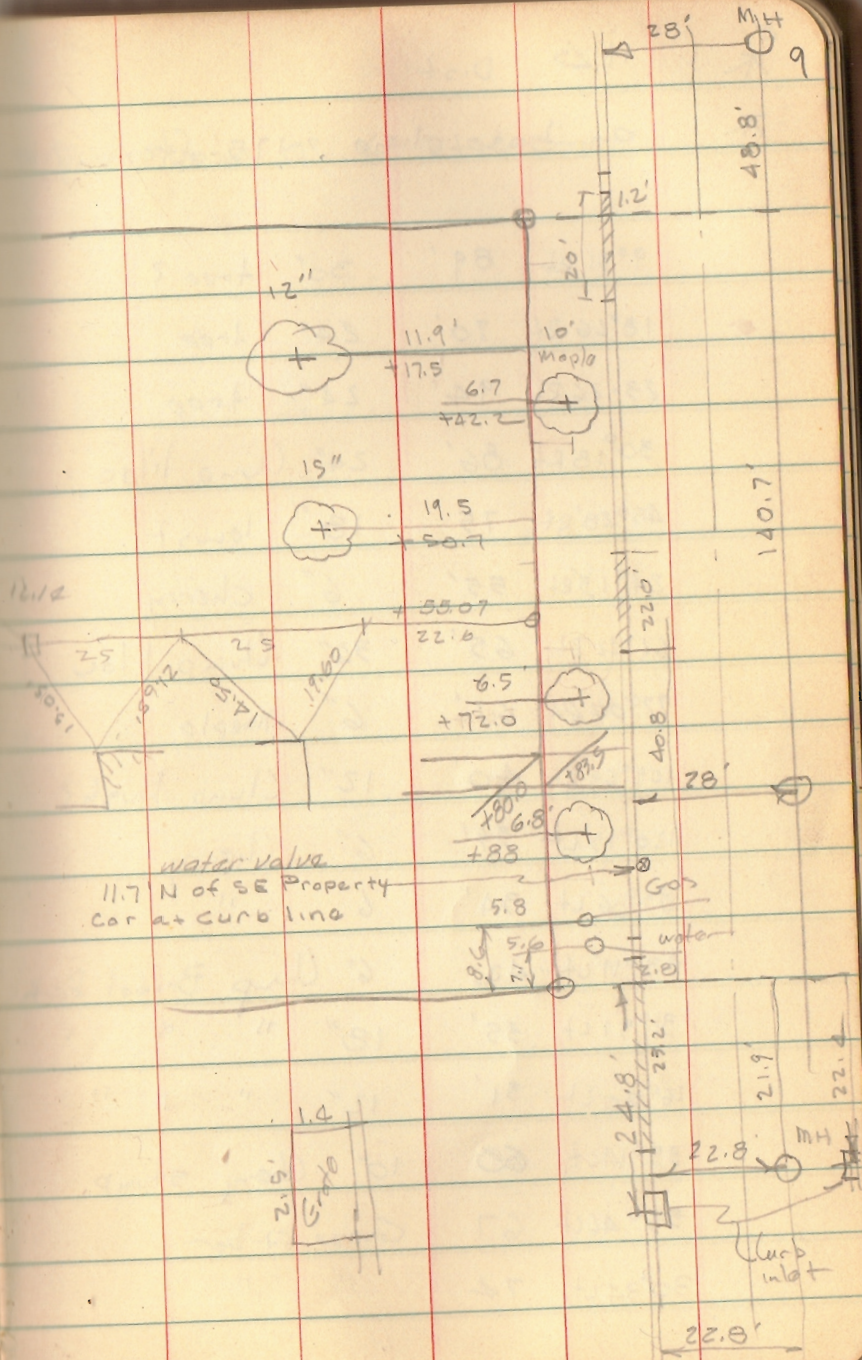 28'
MH
9
48.8'
1.2'
20'
12"
11.9'
+17.5
10'
Maple
6.7
+42.2
15"
19.5
+50.7
140.7'
22.0'
+55.07
22.6
25
25
14.50
19.60
6.5'
+72.0
40.8
+83.5
+80.0
28'
6.8'
+88
water valve
11.7' N of SE Property
Cor at Curb line
Gas
5.8
5.6
water
8.6
7.1
2.8
24.8'
25.2'
21.9'
22.4
1.4
2.5'
Grate
22.8'
Curb
inlet
22.8'